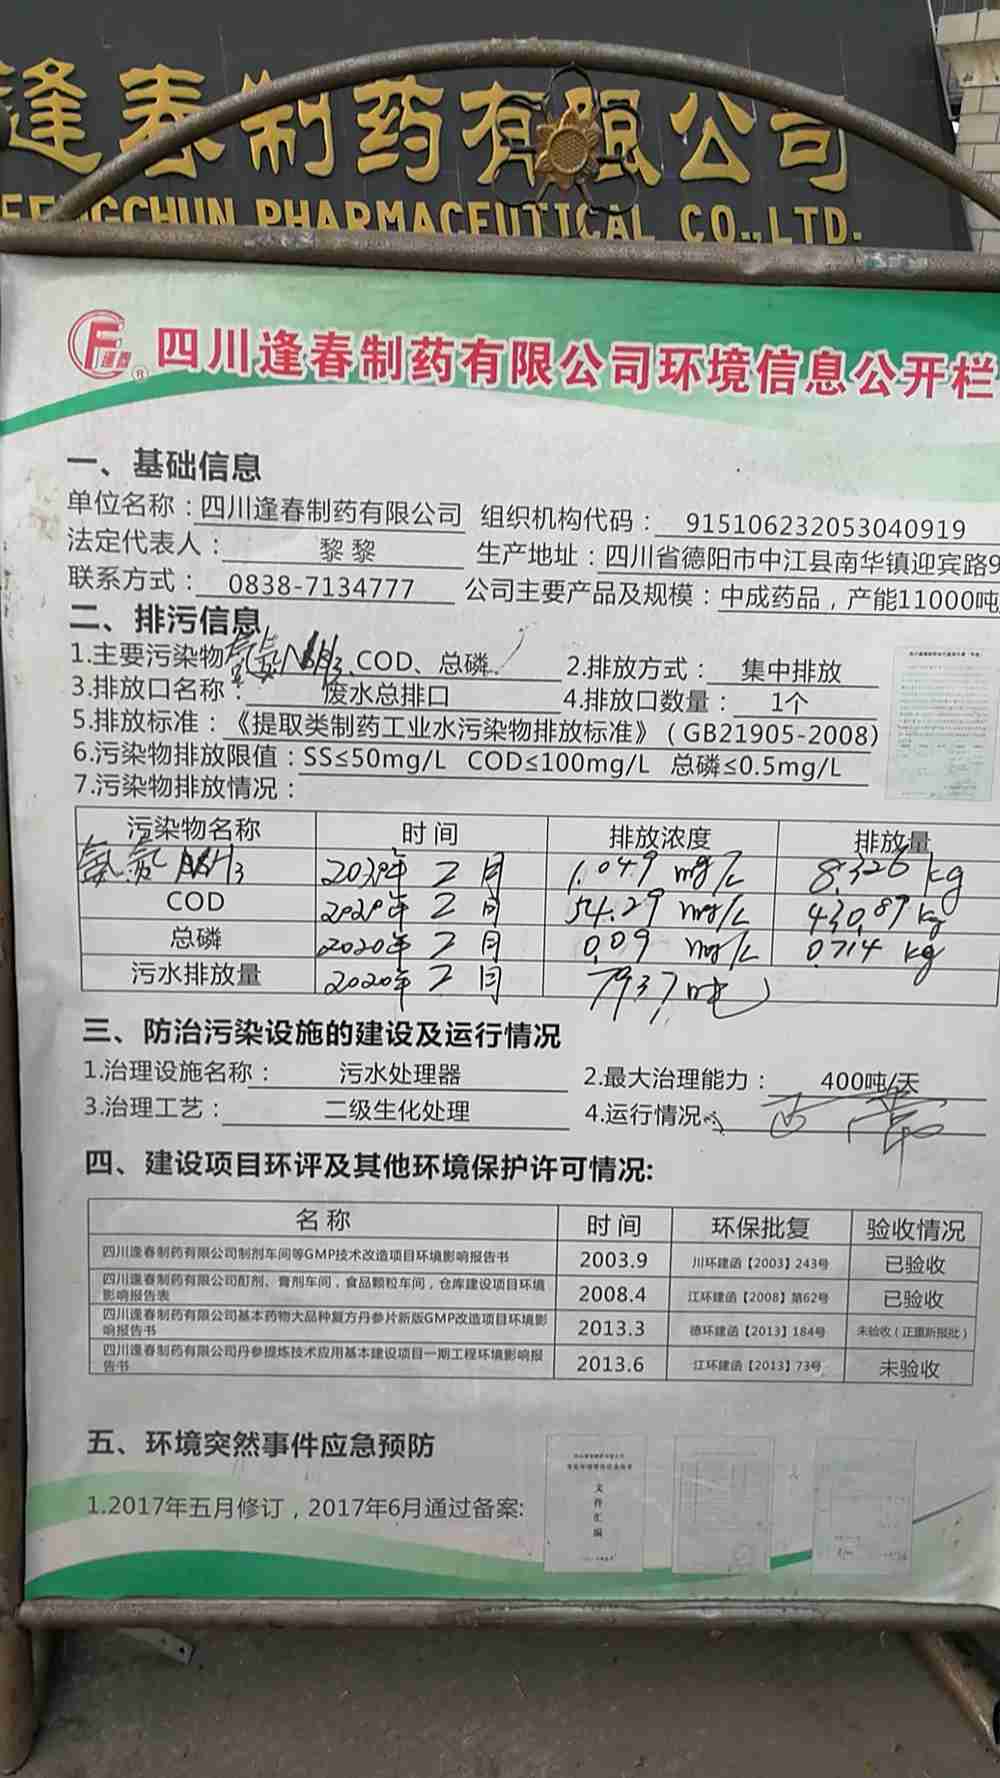 逢春制药有限公司
FENGCHUN PHARMACEUTICAL CO.,LTD.
逢春 ® 四川逢春制药有限公司环境信息公开栏
一、基础信息
单位名称：四川逢春制药有限公司 组织机构代码： 915106232053040919
法定代表人： 黎黎 生产地址：四川省德阳市中江县南华镇迎宾路9
联系方式： 0838-7134777 公司主要产品及规模：中成药品，产能11000吨
二、排污信息
1.主要污染物 氨氮NH3、COD、总磷 2.排放方式： 集中排放
3.排放口名称： 废水总排口 4.排放口数量： 1个
5.排放标准：《提取类制药工业水污染物排放标准》（GB21905-2008）
6.污染物排放限值：SS≤50mg/L COD≤100mg/L 总磷≤0.5mg/L
7.污染物排放情况：
污染物名称 时间 排放浓度 排放量
氨氮NH3 2020年2月 1.049 mg/L 8.326 kg
COD 2020年2月 54.29 mg/L 430.89 kg
总磷 2020年2月 0.09 mg/L 0.714 kg
污水排放量 2020年2月 7937吨
三、防治污染设施的建设及运行情况
1.治理设施名称： 污水处理器 2.最大治理能力： 400吨/天
3.治理工艺： 二级生化处理 4.运行情况： 正常
四、建设项目环评及其他环境保护许可情况:
名称 时间 环保批复 验收情况
四川逢春制药有限公司制剂车间等GMP技术改造项目环境影响报告书 2003.9 川环建函【2003】243号 已验收
四川逢春制药有限公司酊剂、膏剂车间，食品颗粒车间，仓库建设项目环境
影响报告表 2008.4 江环建函【2008】第62号 已验收
四川逢春制药有限公司基本药物大品种复方丹参片新版GMP改造项目环境影
响报告书 2013.3 德环建函【2013】184号 未验收（正重新报批）
四川逢春制药有限公司丹参提炼技术应用基本建设项目一期工程环境影响报
告书 2013.6 江环建函【2013】73号 未验收
五、环境突然事件应急预防
1.2017年五月修订，2017年6月通过备案:
文件汇编